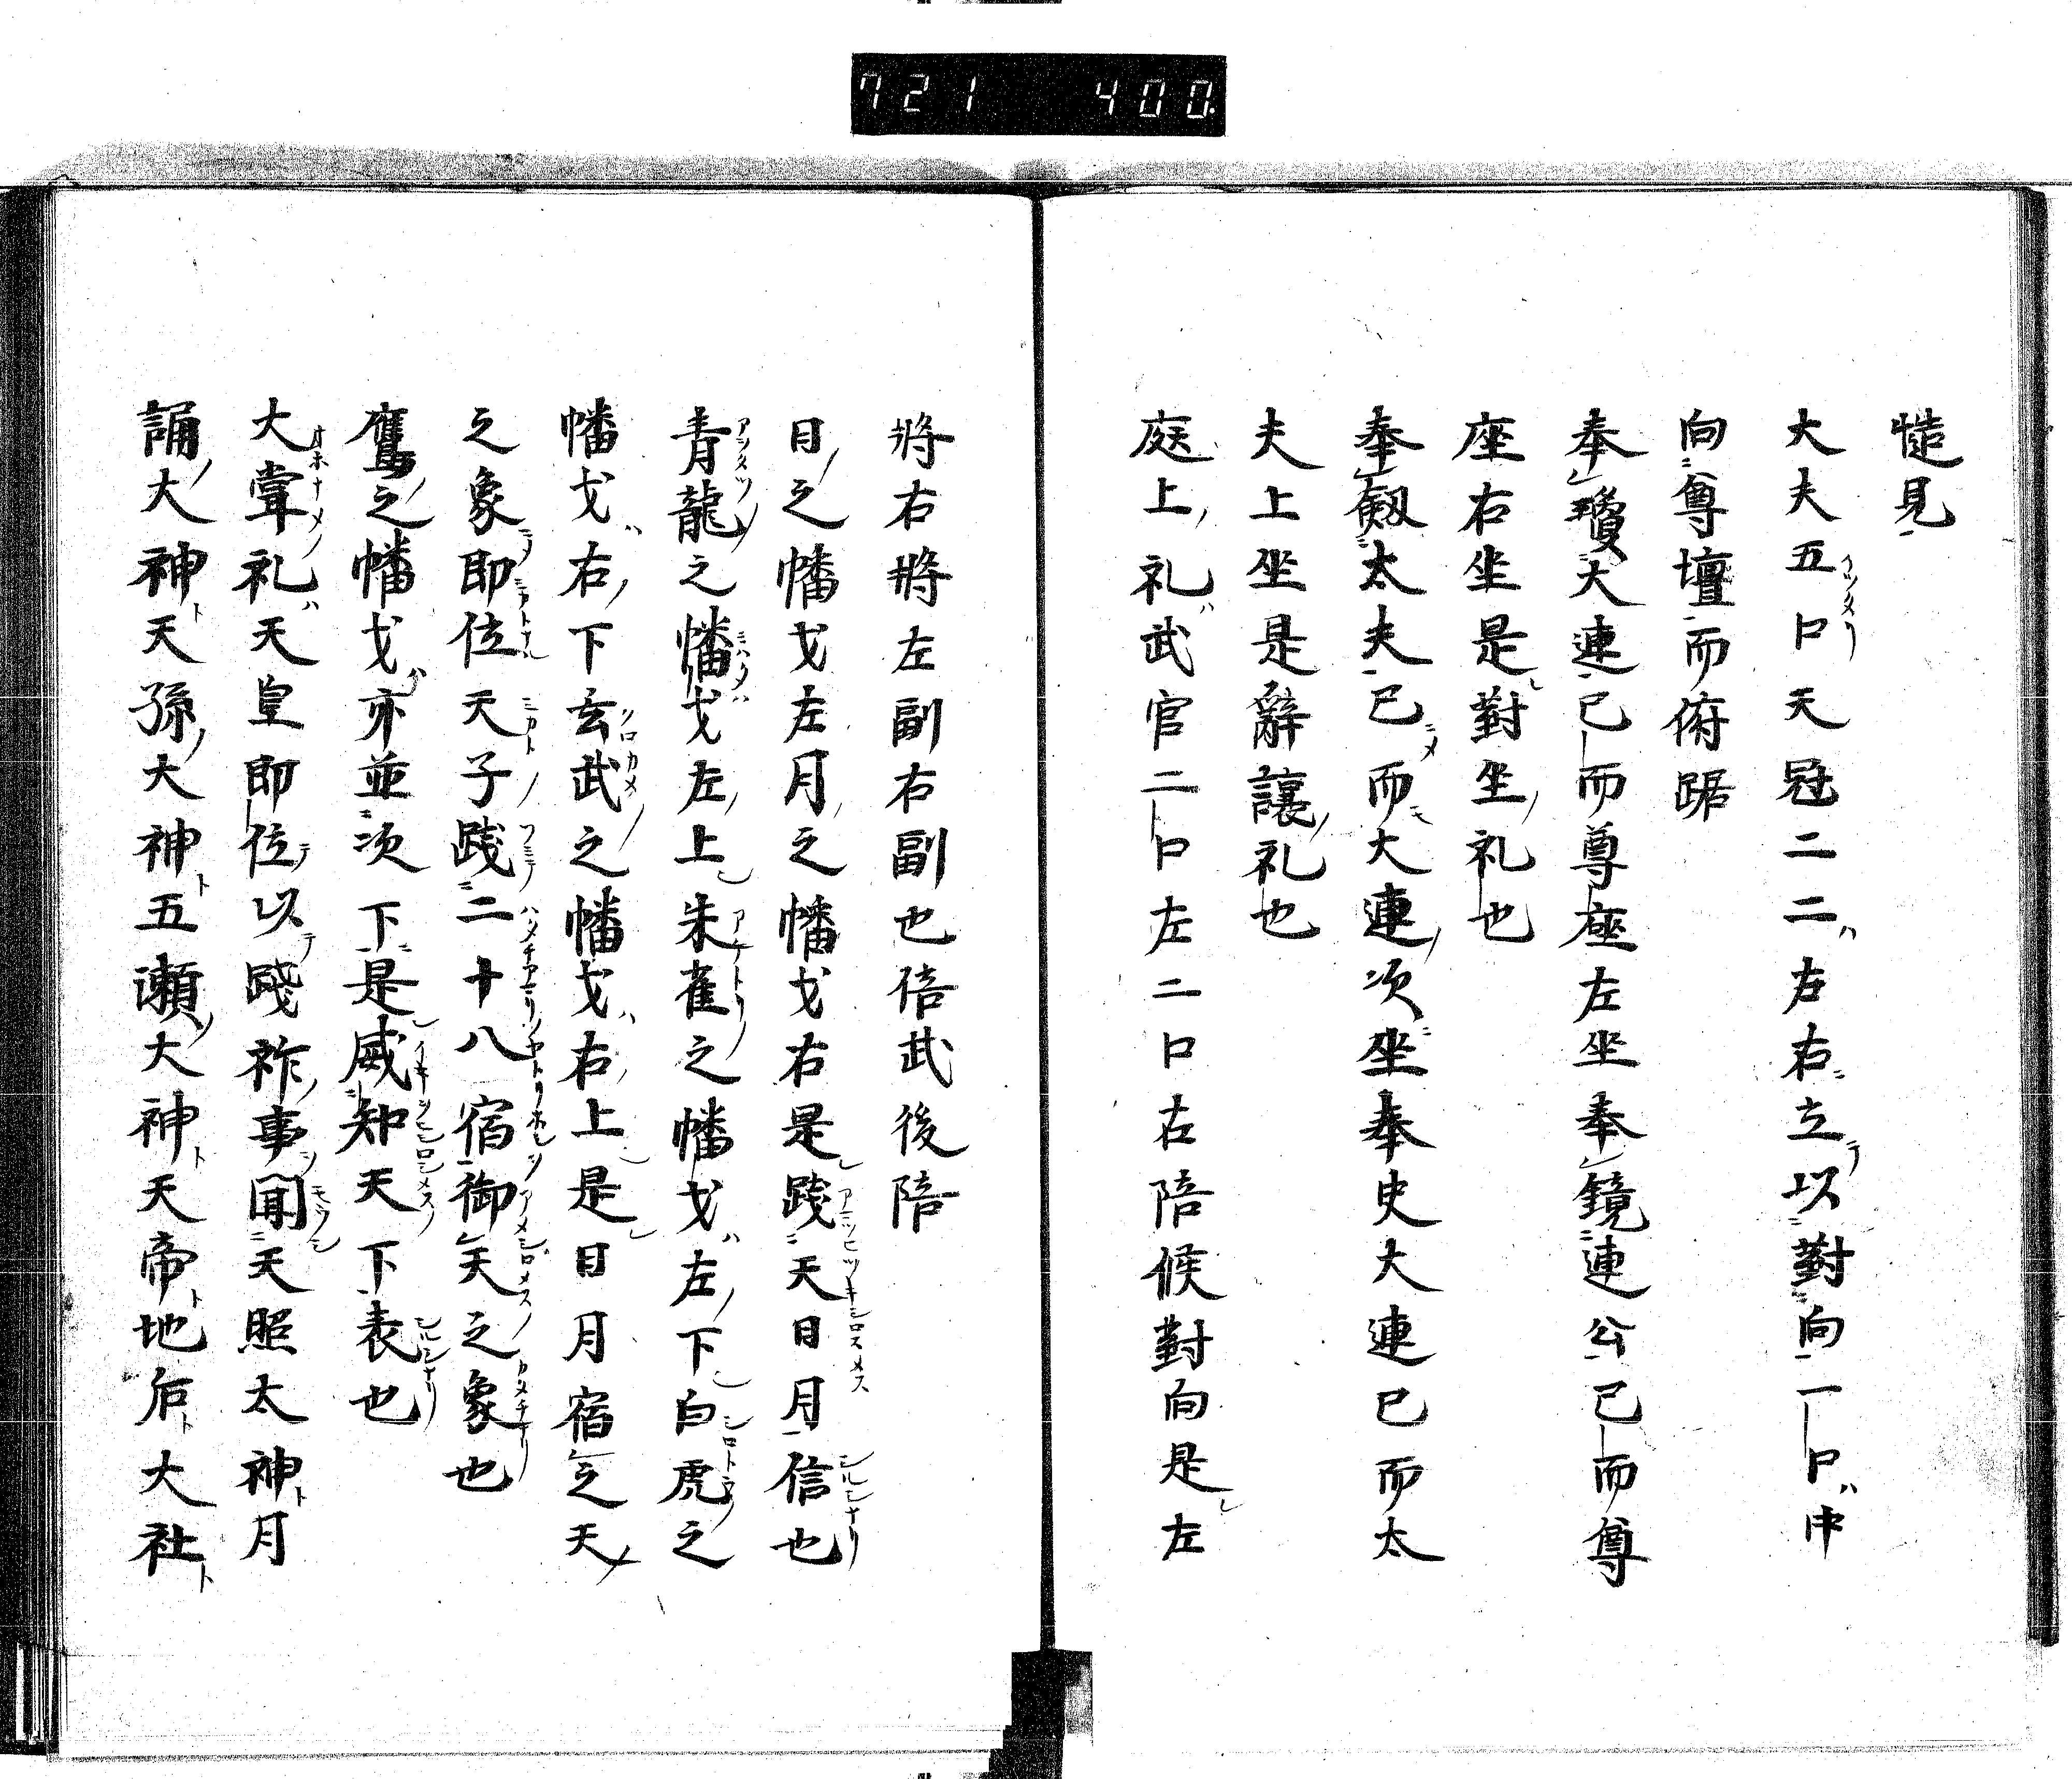 721 400.
慥見
大夫五口天冠二二左右立以對向一口中
向尊壇而俯踞
奉瓊大連已而尊座左坐奉鏡連公已而尊
座右坐是對坐礼也
奉劔太夫已而大連次坐奉史大連已而太
夫上坐是辭讓礼也
庭上礼武官二口左二口右陪候對向是左
將右將左副右副也倍武後陪
日之幡戈左月之幡戈右是踐天日月信也
青龍之幡戈左上朱雀之幡戈左下白虎之
幡戈右下玄武之幡戈右上是日月宿之天
之象即位天子踐二十八宿御天之象也
鷹之幡戈亦並次下是威知天下表也
大甞礼天皇即位以踐祚事聞天照太神月
誦大神天孫大神五瀬大神天帝地后大社